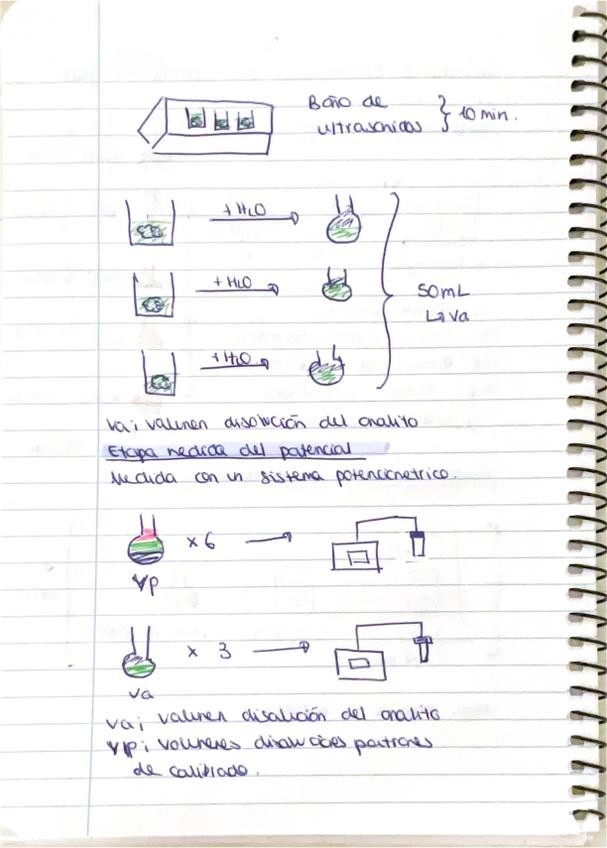 Baño de
ultrasonidos } 10 min.
+ H2O
+ H2O
+ H2O
50mL
↳ Va
Va; volumen disolución del analito
Etapa medida del potencial
Medida con un sistema potenciometrico.
x 6
Vp
x 3
Va
Va; volumen disolución del analito
Vp; volumenes disoluciones patrones
de calibrado.